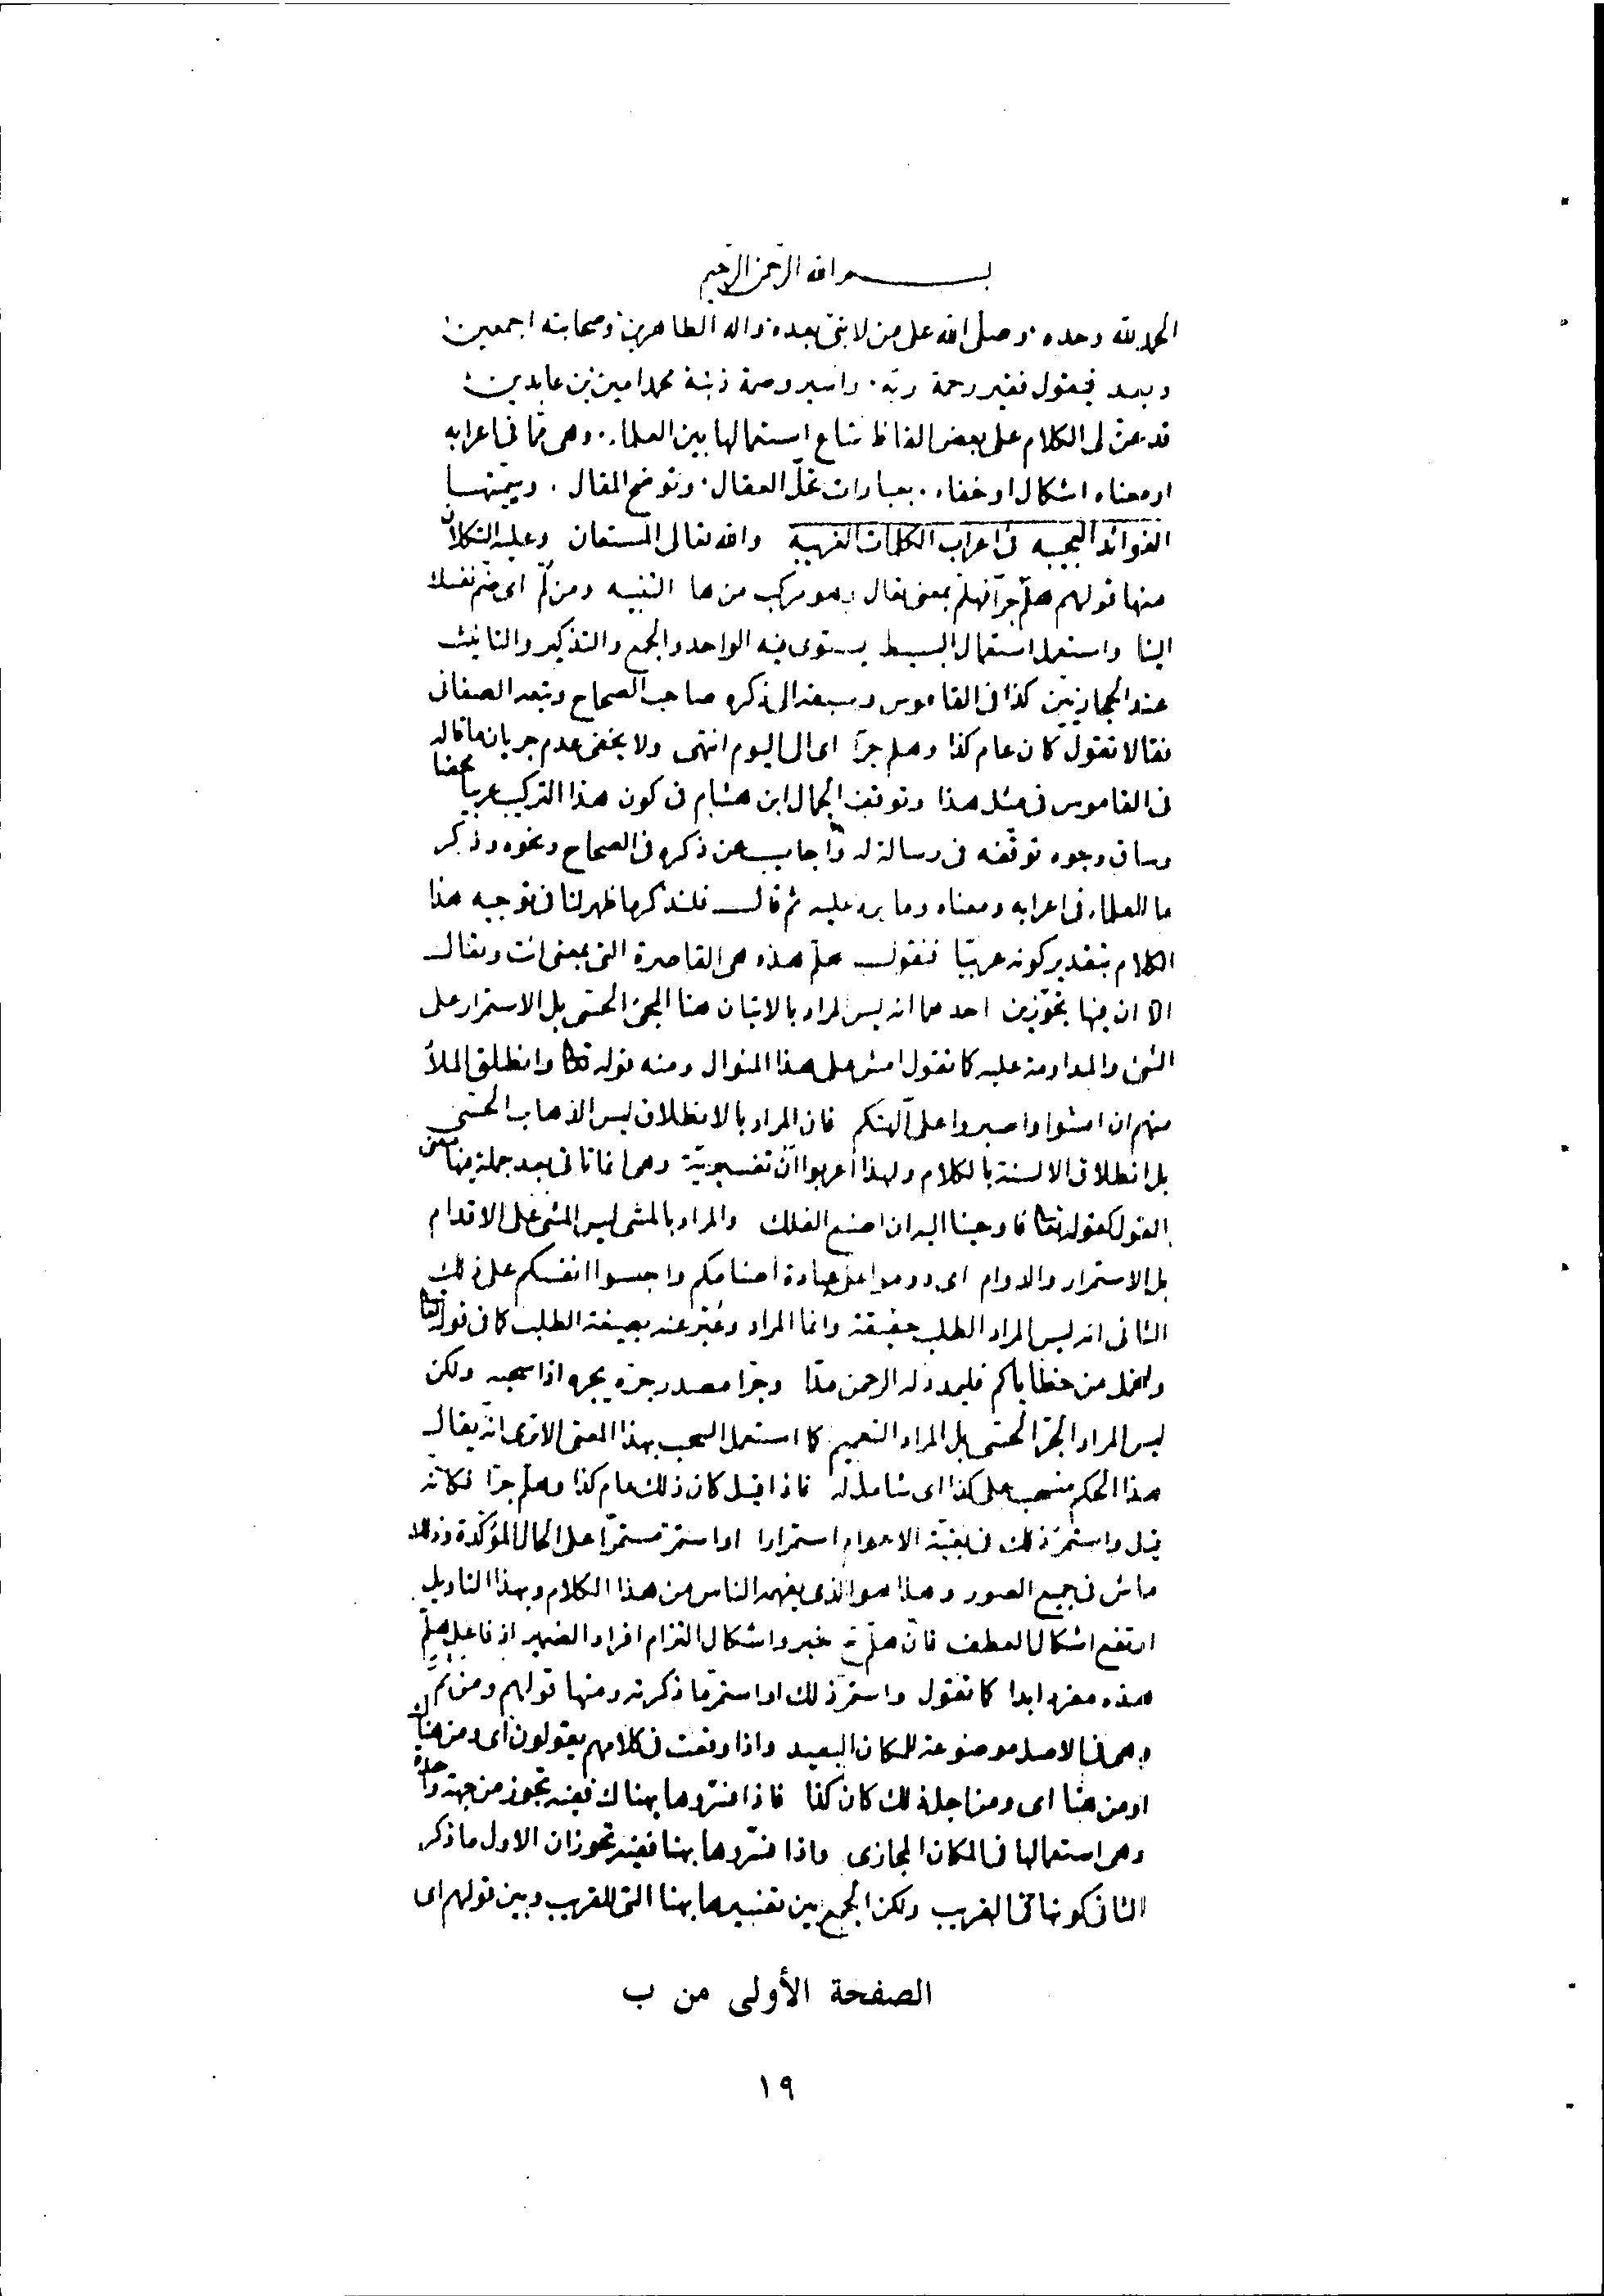 بسم الله الرحمن الرحيم
الحمد لله وحده . وصلى الله على من لا نبي بعده . واله الطاهرين وصحابته اجمعين
وبعد فيقول فقير رحمة ربه . واسير وصمة ذنبه محمد امين بن عابدين
قد عنّ لى الكلام على بعض الفاظ شاع استعمالها بين العلماء . وهى مما فى اعرابه
او معناه اشكال او خفاء . بعبارات تحلّ العقال . وتوضح المقال . وسميتها
الفوائد العجيبه فى اعراب الكلمات الغريبة والله تعالى المستعان وعليه التكلان
منها قولهم هلمّ جرّا فهلمّ بمعنى تعال وهو مركب من ها التنبيه ومن لُمّ اى ضم نفسك
الينا واستعمل استعمال البسيط يستوى فيه الواحد والجمع والتذكير والتانيث
عند الحجازيين كذا فى القاموس وسبقه الى ذكره صاحب الصحاح وتبعه الصغانى
فقالا تقول كان عام كذا وهلم جرّا اى الى اليوم انتهى ولا يخفى عدم جريان ما قاله
فى القاموس فى مثل هذا وتوقف الجمال ابن هشام فى كون هذا التركيب عربيا محضا
وساق وجوه توقّفه فى رسالة له وأجاب عن ذكره فى الصحاح ونحوه وذكر
ما للعلماء فى اعرابه ومعناه وما يرد عليه ثم قال فلنذكر ما ظهر لنا فى توجيه هذا
الكلام بتقدير كونه عربيّا فنقول هلمّ هذه هى القاصرة التى بمعنى ائت وتعال
الا ان فيها تجوّزين احدهما انه ليس المراد بالاتيان هنا المجئ الحسّى بل الاستمرار على
الشئ والمداومة عليه كما تقول امش على هذا المنوال ومنه قوله تعا وانطلق الملأ
منهم ان امشوا واصبروا على آلهتكم فان المراد بالانطلاق ليس الذهاب الحسّى
بل انطلاق الالسنة بالكلام ولهذا أعربوا أن تفسيريّة وهى انما تاتى بعد جملة فيها معنى
القول كقوله تعا فاوحينا اليه ان اصنع الفلك والمراد بالمشى ليس المشى على الاقدام
بل الاستمرار والدوام اى دوموا على عبادة اصنامكم واحبسوا انفسكم على ذلك
الثانى انه ليس المراد الطلب حقيقة وانما المراد وعُبّر عنه بصيغة الطلب كما فى قوله تعا
ولنحمل من خطاياكم فليمدد له الرحمن مدّا وجرّا مصدر جرّه يجره اذا سحبه ولكن
ليس المراد الجرّ الحسّى بل المراد التعميم كما استعمل السحب بهذا المعنى الا ترى انّه يقال
هذا الحكم منسحب على كذا اى شامل له فاذا قيل كان ذلك عام كذا وهلمّ جرّا فكانّه
قيل واستمرّ ذلك فى بقيّة الاعوام استمرارا او استمرّ مستمرّا على الحال المؤكّدة وذلك
ماش فى جميع الصور وهذا هو الذى يفهمه الناس من هذا الكلام وبهذا التاويل
ارتفع اشكال العطف فانّ هلمّ ح خبر واشكال التزام افراد الضمير اذ فاعل هلمّ
هذه مفرد ابدا كما تقول واستمرّ ذلك او استمرّ ما ذكرته ومنها قولهم ومن ثَمّ
وهى فى الاصل موضوعة للمكان البعيد واذا وقعت فى كلامهم يقولون اى ومن هناك
او من هنا اى ومن اجل ذلك كان كذا فاذا فسّروها بهناك ففيه تجوز من جهة واحدة
وهى استعمالها فى المكان المجازى واذا فسّروها بهنا ففيه تجوزان الاول ما ذكر
الثانى كونها فى القريب ولكن الجمع بين تفسيرها بهنا التى للقريب وبين قولهم اى
الصفحة الأولى من ب
١٩